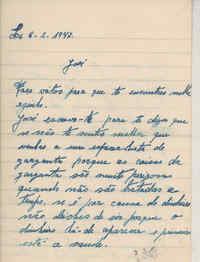 Lx 6-2-1947.
José
Faço votos para que te encontres melh
José escrevo-te para te dizer que
se não te sentes melhor que
venhas a um especialista de
garganta porque as coisas de
garganta são muito perigosas
quando não são tratadas a
tempo, se é por causa do dinheiro
não deixes de vir porque o
dinheiro há-de aparecer e primeiro
está a saude.